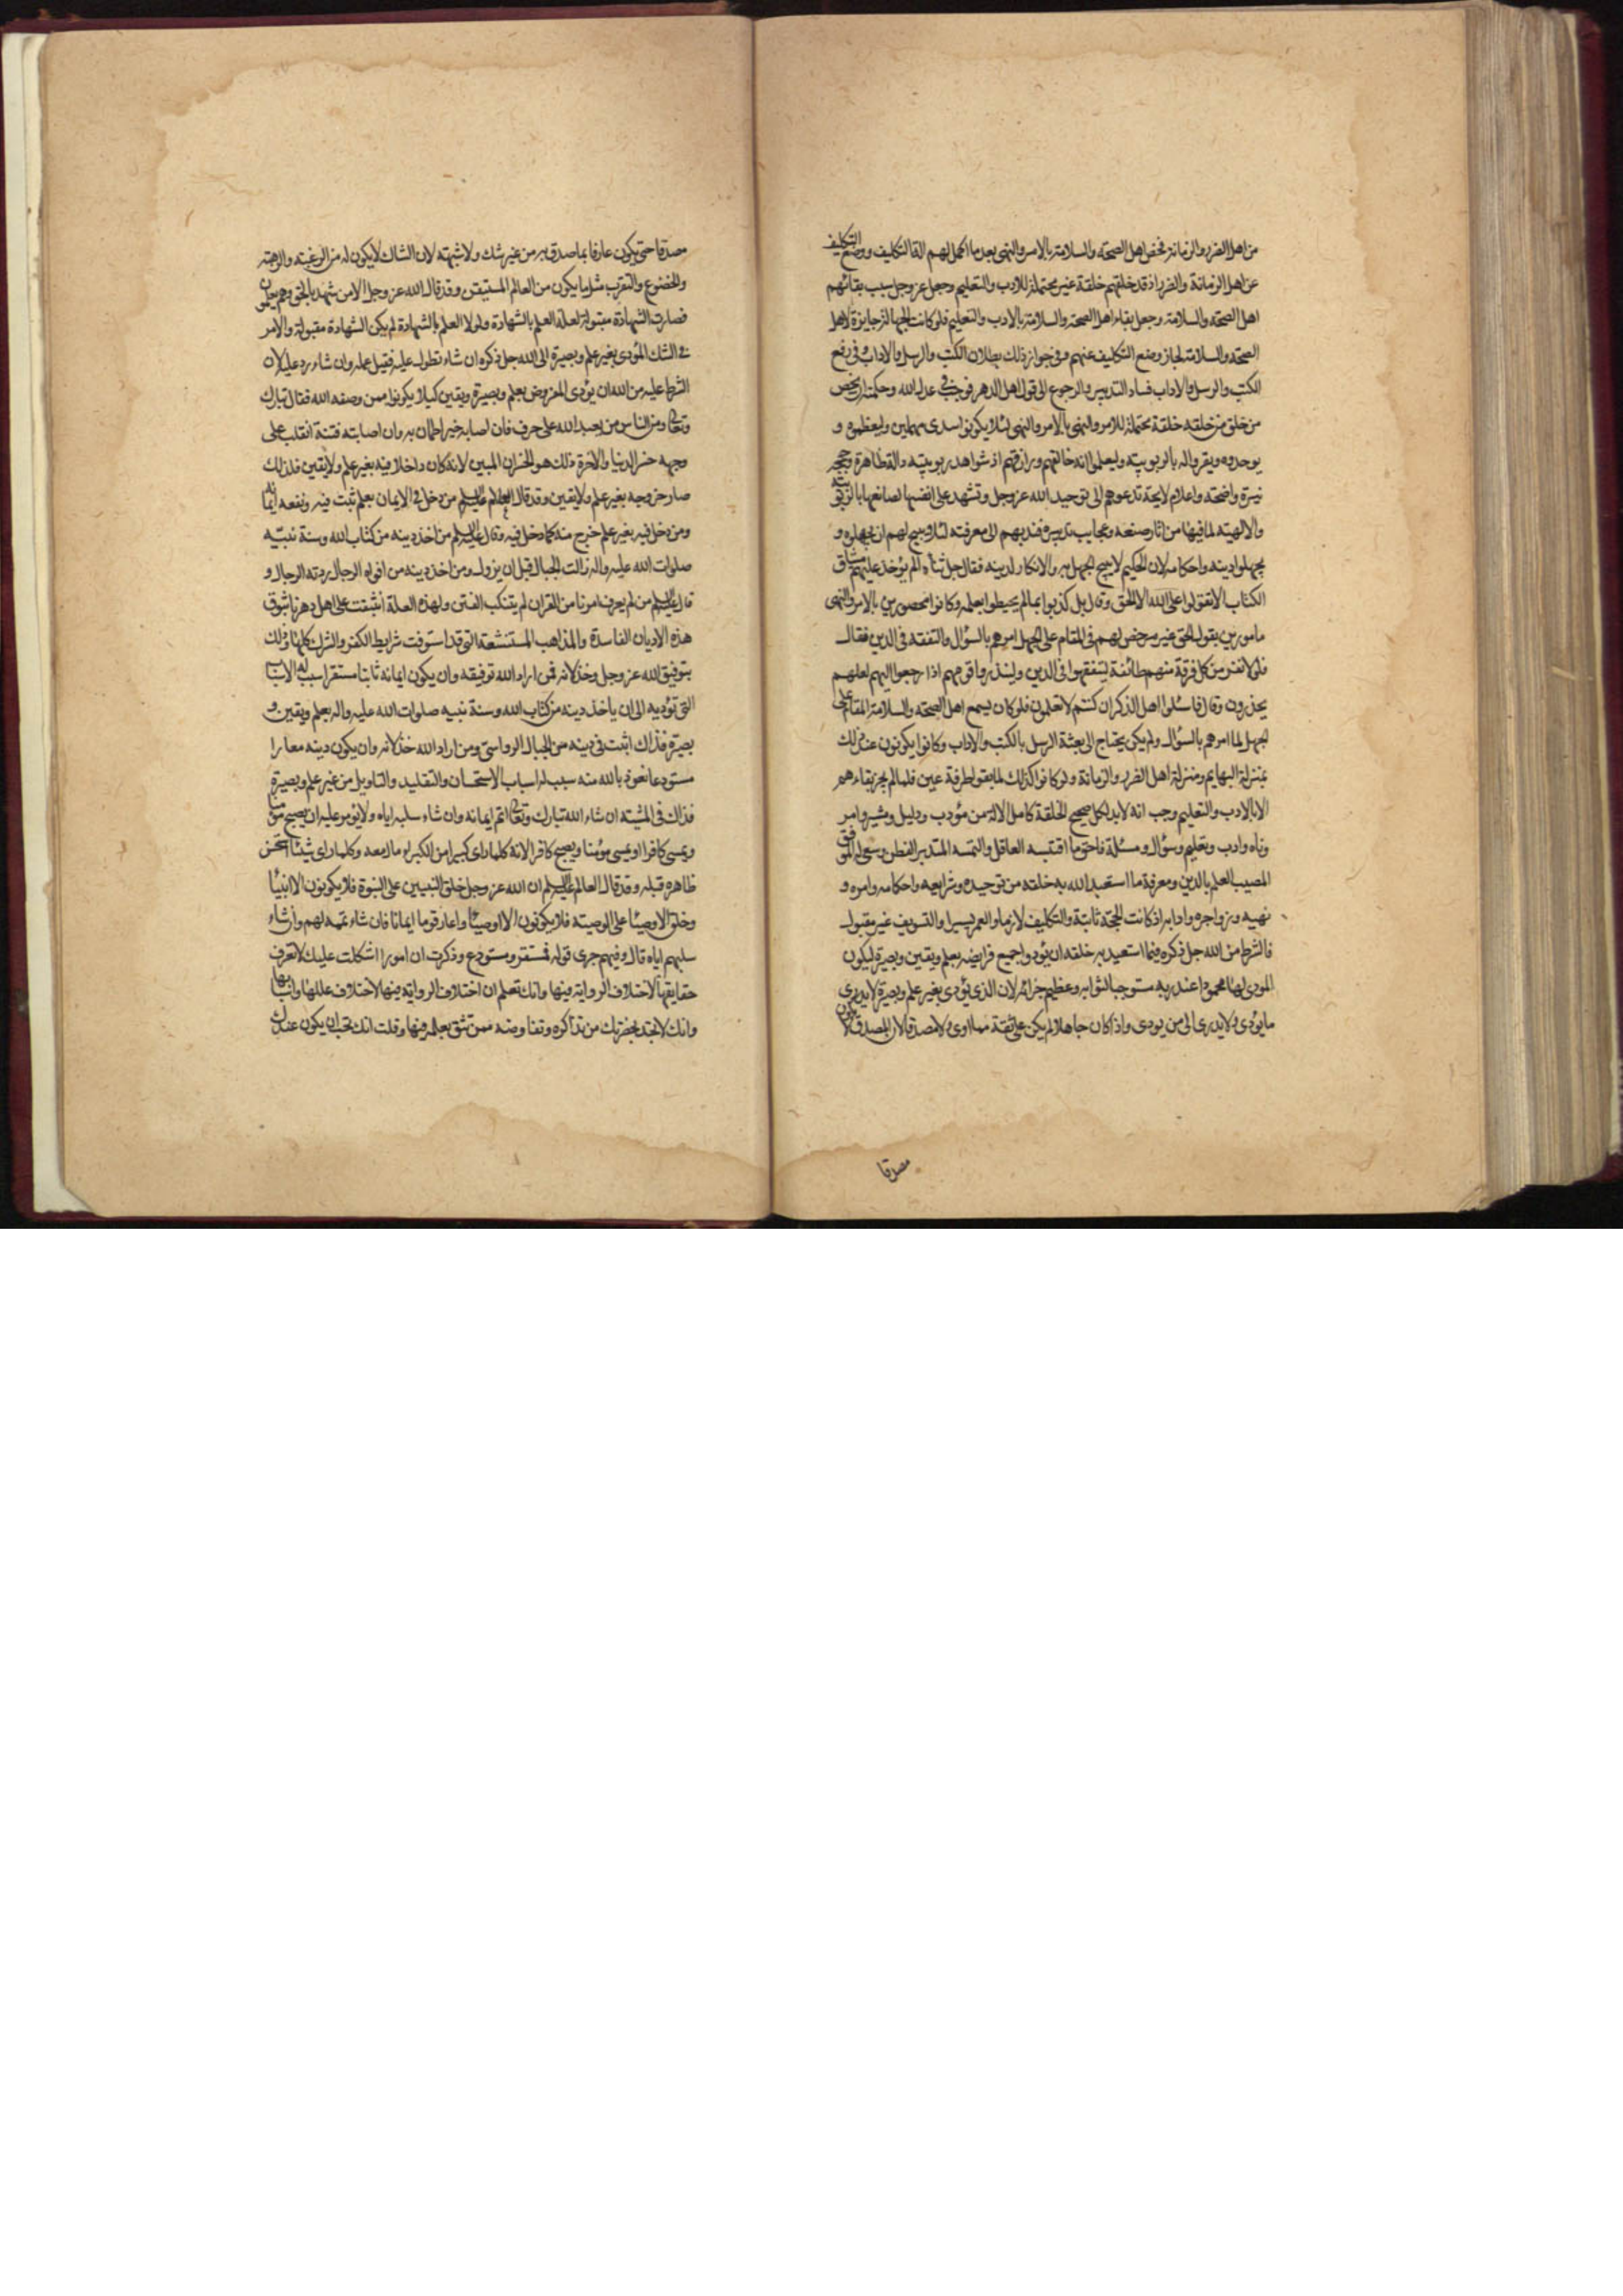 من اهل الضرر والزمانة فخص اهل الصحة والسلامة بالامر والنهى بعد ما اكمل لهم الة التكليف ووضع التكليف
عن اهل الزمانة والضرر اذ قد خلقهم خلقة غير محتملة للادب والتعليم وجعل عز وجل سبب بقائهم
اهل الصحة والسلامة وجعل بقاء اهل الصحة والسلامة بالادب والتعليم فلو كانت الجهالة جايزة لاهل
الصحة والسلامة لجاز وضع التكليف عنهم وفى جواز ذلك بطلان الكتب والرسل والاداب وفى رفع
الكتب والرسل والاداب فساد التدبير والرجوع الى قول اهل الدهر فوجب فى عدل الله وحكمته ان يخص
من خلق من خلقه خلقة محتملة للامر والنهى بالامر والنهى لئلا يكونوا سدى مهملين وليعظموه و
يوحدوه ويقروا له بالربوبيته وليعلموا انه خالقهم ورازقهم اذ شواهد ربوبيته دالة ظاهرة وحججه
نيرة واضحة واعلامه لايحة تدعوهم الى توحيد الله عز وجل وتشهد على انفسها لصانعها بالربوبيته
والالهيته لما فيها من اثار صنعه وعجايب تدبيره فندبهم الى معرفته لئلا يبيح لهم ان يجهلوه و
يجهلوا دينه واحكامه لان الحكيم لا يبيح الجهل به والانكار لدينه فقال جل ثناؤه الم يؤخذ عليهم ميثاق
الكتاب الا تقولوا على الله الا الحق وقال بل كذبوا بما لم يحيطوا بعلمه وكانوا محصورين بالامر والنهى
مامورين بقول الحق غير مرخص لهم فى المقام على الجهل امرهم بالسؤال والتفقه فى الدين فقال
فلولا نفر من كل فرقة منهم طائفة ليتفقهوا فى الدين ولينذروا قومهم اذا رجعوا اليهم لعلهم
يحذرون وقال فاسئلوا اهل الذكر ان كنتم لا تعلمون فلو كان يسع اهل الصحة والسلامة المقام على
الجهل لما امرهم بالسؤال ولم يكن يحتاج الى بعثة الرسل بالكتب والاداب وكانوا يكونون عند ذلك
بمنزلة البهايم ومنزلة اهل الضرر والزمانة ولو كانوا كذلك لما بقوا طرفة عين فلما لم يجز بقاءهم
الا بالادب والتعليم وجب انه لابد لكل صحيح الخلقة كامل الالة من مؤدب ودليل ومشير وامر
وناه وادب وتعليم وسؤال ومسئلة فاحق ما اقتبسه العاقل والتمسه المتدبر الفطن وسعى له الموفق
المصيب العلم بالدين ومعرفة ما استعبد الله به خلقه من توحيده وشرايعه واحكامه وامره و
نهيه وزواجره وادابه اذ كانت الحجة ثابتة والتكليف لازما والعمر يسيرا والتسويف غير مقبول
فالشرط من الله جل ذكره فيما استعبد به خلقه ان يؤدوا جميع فرايضه بعلم ويقين وبصيرة ليكون
المودى لها محمودا عند ربه مستوجبا لثوابه وعظيم جزائه لان الذى يؤدى بغير علم وبصيرة لا يدرى
ما يؤدى ولا يدرى الى من يودى واذا كان جاهلا لم يكن على ثقة مما ادى ولا مصدقا لان المصدق لا يكون
مصدقا
مصدقا حتى يكون عارفا بما صدق به من غير شك ولا شبهة لان الشاك لا يكون له من الرغبة والرهبة
والخضوع والتقرب مثل ما يكون من العالم المستيقن وقد قال الله عز وجل الا من شهد بالحق وهم يعلمون
فصارت الشهادة مقبولة لعلة العلم بالشهادة ولولا العلم بالشهادة لم يكن الشهادة مقبولة والامر
فى الشك المؤدى بغير علم وبصيرة الى الله جل ذكره ان شاء تطول عليه فقبل عمله وان شاء رد عليه لان
الشرط عليه من الله ان يؤدى المفروض بعلم وبصيرة ويقين كيلا يكونوا ممن وصفه الله فقال تبارك
وتعالى ومن الناس من يعبد الله على حرف فان اصابه خير اطمان به وان اصابته فتنة انقلب على
وجهه خسر الدنيا والاخرة ذلك هو الخسران المبين لانه كان داخلا فيه بغير علم ولا يقين فلذلك
صار خروجه بغير علم ولا يقين وقد قال العالم عليه السلم من دخل فى الايمان بعلم ثبت فيه ونفعه ايمانه
ومن دخل فيه بغير علم خرج منه كما دخل فيه وقال عليه السلم من اخذ دينه من كتاب الله وسنة نبيه
صلوات الله عليه واله زالت الجبال قبل ان يزول ومن اخذ دينه من افواه الرجال ردته الرجال و
قال عليه السلم من لم يعرف امرنا من القران لم يتنكب الفتن ولهذه العلة انبثقت على اهل دهرنا بثوق
هذه الاديان الفاسدة والمذاهب المستشنعة التى قد استوفت شرايط الكفر والشرك كلها وذلك
بتوفيق الله عز وجل وخذلانه فمن اراد الله توفيقه وان يكون ايمانه ثابتا مستقرا سبب له الاسباب
التى تؤديه الى ان ياخذ دينه من كتاب الله وسنة نبيه صلوات الله عليه واله بعلم ويقين و
بصيرة فذاك اثبت فى دينه من الجبال الرواسى ومن اراد الله خذلانه وان يكون دينه معارا
مستودعا نعوذ بالله منه سبب له اسباب الاستحسان والتقليد والتاويل من غير علم وبصيرة
فذاك فى المشية ان شاء الله تبارك وتعالى اتم ايمانه وان شاء سلبه اياه ولا يؤمن عليه ان يصبح مؤمنا
ويمسى كافرا او يمسى مؤمنا ويصبح كافرا لانه كلما راى كبيرا من الكبراء مال معه وكلما راى شيئا استحسن
ظاهره قبله وقد قال العالم عليه السلم ان الله عز وجل خلق النبيين على النبوة فلا يكونون الا انبيا
وخلق الاوصيا على الوصية فلا يكونون الا اوصيا واعار قوما ايمانا فان شاء تممه لهم وان شاء
سلبهم اياه قال وفيهم جرى قوله فمستقر ومستودع وذكرت ان امورا اشكلت عليك لا تعرف
حقايقها لاختلاف الرواية فيها وانك تعلم ان اختلاف الرواية فيها لاختلاف عللها واسبابها
وانك لا تجد بحضرتك من تذاكره وتفاوضه ممن تثق بعلمه فيها وقلت انك تحب ان يكون عندك